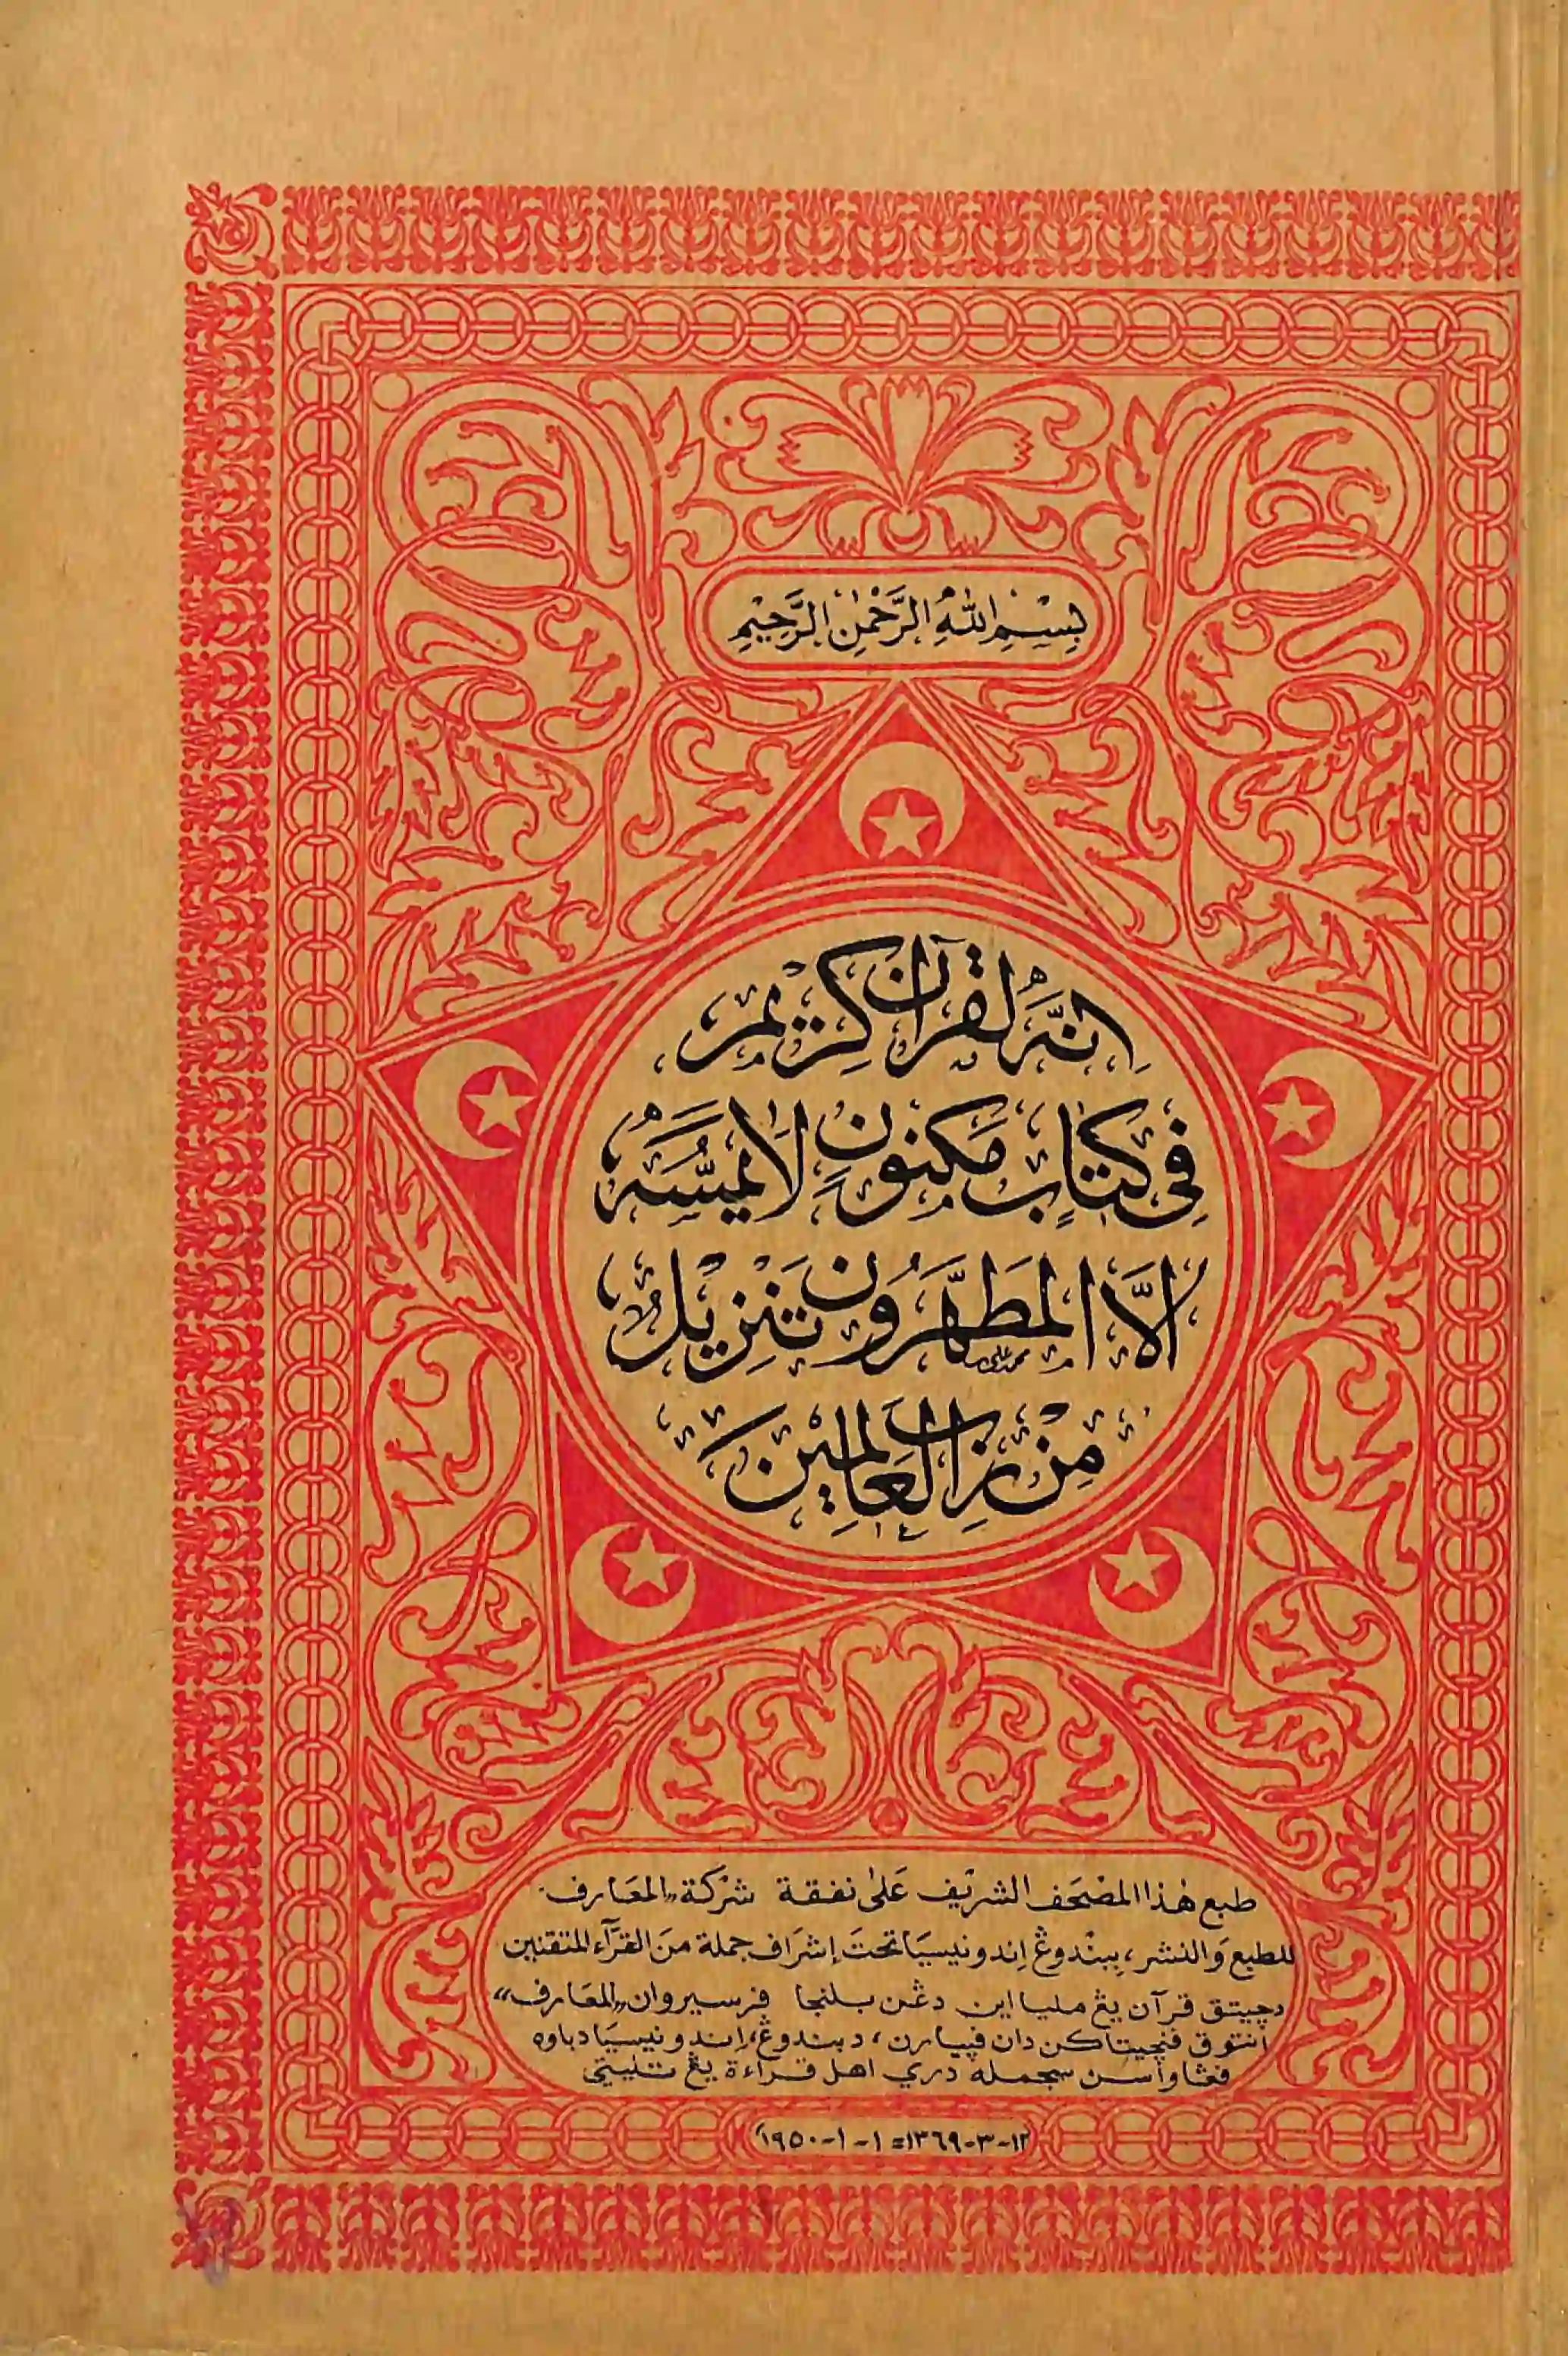 بِسْــمِ اللهِ الرَّحْمٰنِ الرَّحِيْمِ
اِنَّهُ لَقُرْآنٌ كَرِيْمٌ
فِى كِتَابٍ مَكْنُونٍ لَا يَمَسُّهُ
اِلَّا الْمُطَهَّرُونَ تَنْزِيْلٌ
مِنْ رَبِّ الْعَالَمِيْنَ
محمد على
طبع هٰذا المصْحَف الشريْف عَلىٰ نفقة شرْكَة „المعَارف“
للطبع وَالنشر، ببنْدوڠ اِندونيسِيَا تحتَ إشرَاف جملة منَ القرَّآء المتقنين
دچيتق قرآن يڠ مليا اين دڠن بلنجا ڤرسيروان „المعَارف“
انتوق ڤنچيتاكن دان ڤپيارن، دبندوڠ، اِندونيسيَا دباوه
ڤڠاواسن سجمله دري اهل قراءة يڠ تليتي
١٢-٣-١٣٦٩=١-١-١٩٥٠